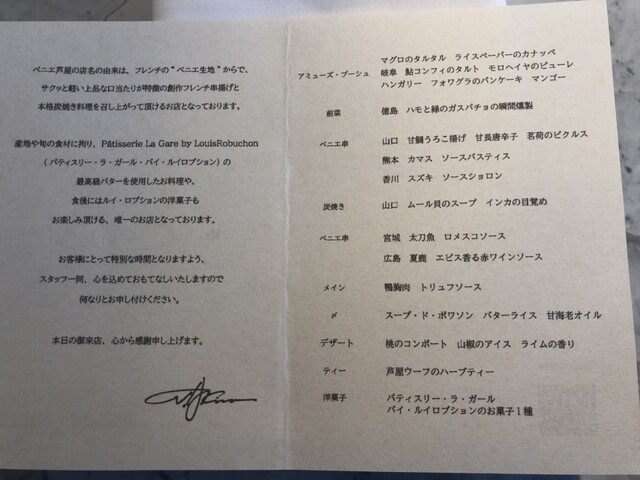 ベニエ芦屋の店名の由来は、フレンチの“ベニエ生地”からで、
サクッと軽い上品な口当たりが特徴の創作フレンチ串揚げと
本格炭焼き料理を召し上がって頂けるお店となっております。
産地や旬の食材に拘り、Pâtisserie La Gare by LouisRobuchon
（パティスリー・ラ・ガール・バイ・ルイロブション）の
最高級バターを使用したお料理や、
食後にはルイ・ロブションの洋菓子も
お楽しみ頂ける、唯一のお店となっております。
お客様にとって特別な時間となりますよう、
スタッフ一同、心を込めておもてなしいたしますので
何なりとお申し付けください。
本日の御来店、心から感謝申し上げます。
アミューズ・ブーシュ マグロのタルタル ライスペーパーのカナッペ
岐阜 鮎コンフィのタルト モロヘイヤのピューレ
ハンガリー フォワグラのパンケーキ マンゴー
前菜 徳島 ハモと緑のガスパチョの瞬間燻製
ベニエ串 山口 甘鯛うろこ揚げ 甘長唐辛子 茗荷のピクルス
熊本 カマス ソースパスティス
香川 スズキ ソースショロン
炭焼き 山口 ムール貝のスープ インカの目覚め
ベニエ串 宮城 太刀魚 ロメスコソース
広島 夏鹿 エピス香る赤ワインソース
メイン 鴨胸肉 トリュフソース
〆 スープ・ド・ポワソン バターライス 甘海老オイル
デザート 桃のコンポート 山椒のアイス ライムの香り
ティー 芦屋ウーフのハーブティー
洋菓子 パティスリー・ラ・ガール
バイ・ルイロブションのお菓子1種